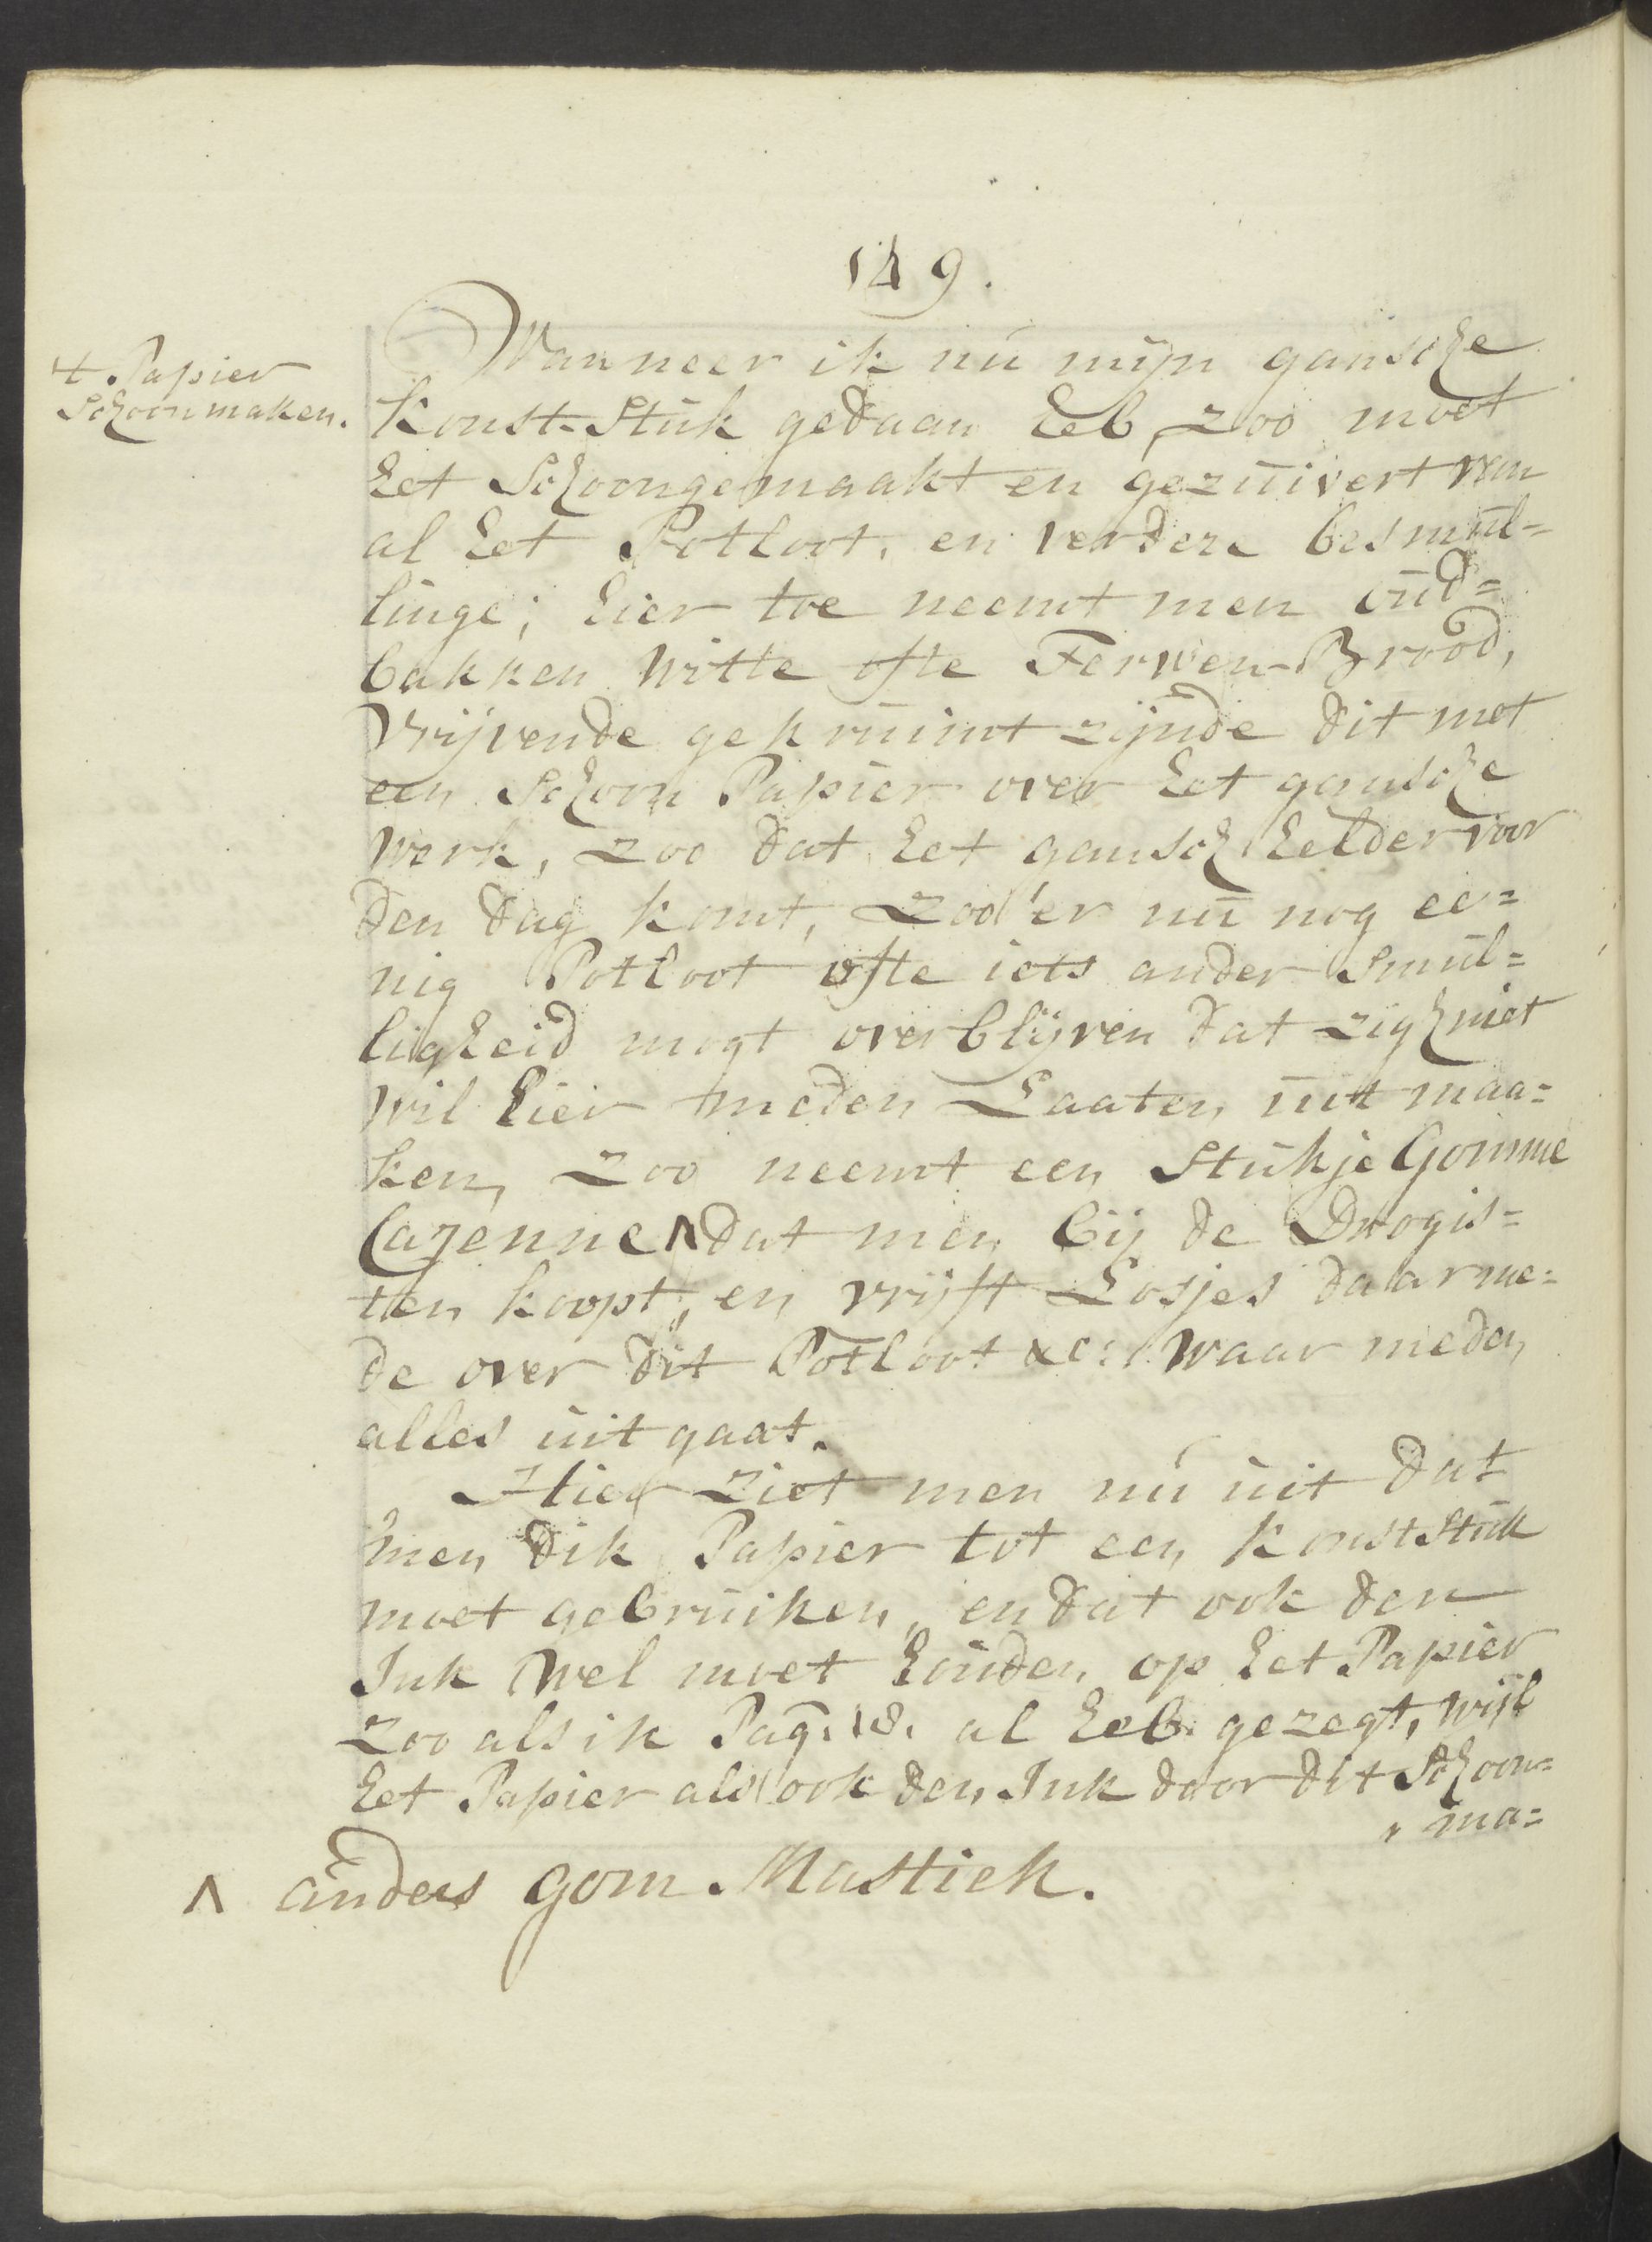 149.
't Papier
Schoonmaken.
Wanneer ik nu mijn gansche
Konst-Stuk gedaan heb, zoo moet
het Schoongemaakt en gezuivert van
al het Potloot, en verdere besmul=
linge; hier toe neemt men oud=
bakken Witte ofte Terwen-Brood,
Vrijvende gekruimt zijnde dit met
een Schoon Papier over het gansche
Werk, zoo dat het gansch helder voor
den dag komt, Zoo'er nu nog ee=
nig Potloot ofte iets ander Smul=
ligheid mogt overblijven dat zigh niet
wil hier meden Laaten uit maa=
ken, zoo neemt een Stukje Gomme
Cazenne ʌ dat men bij de Drogis=
ten koopt, en vrijft Losjes daarme=
de over dit Potloot &c: waar meden
alles uit gaat.
Hier ziet men nu uit dat
men dik Papier tot een konststuk
moet gebruiken, en dat ook den
Ink wel moet houden op het Papier
zoo als ik Pag. 18. al heb gezegt, wijl
het Papier als ook den Ink door dit Schoon=
ma=
ʌ anders gom Mastiek.